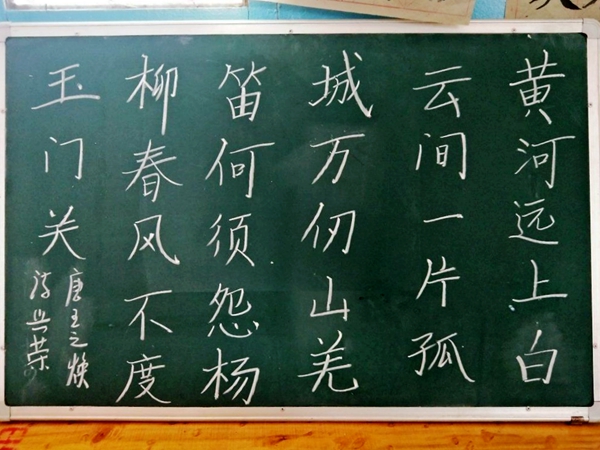 黄河远上白
云间一片孤
城万仞山羌
笛何须怨杨
柳春风不度
玉门关
唐王之焕